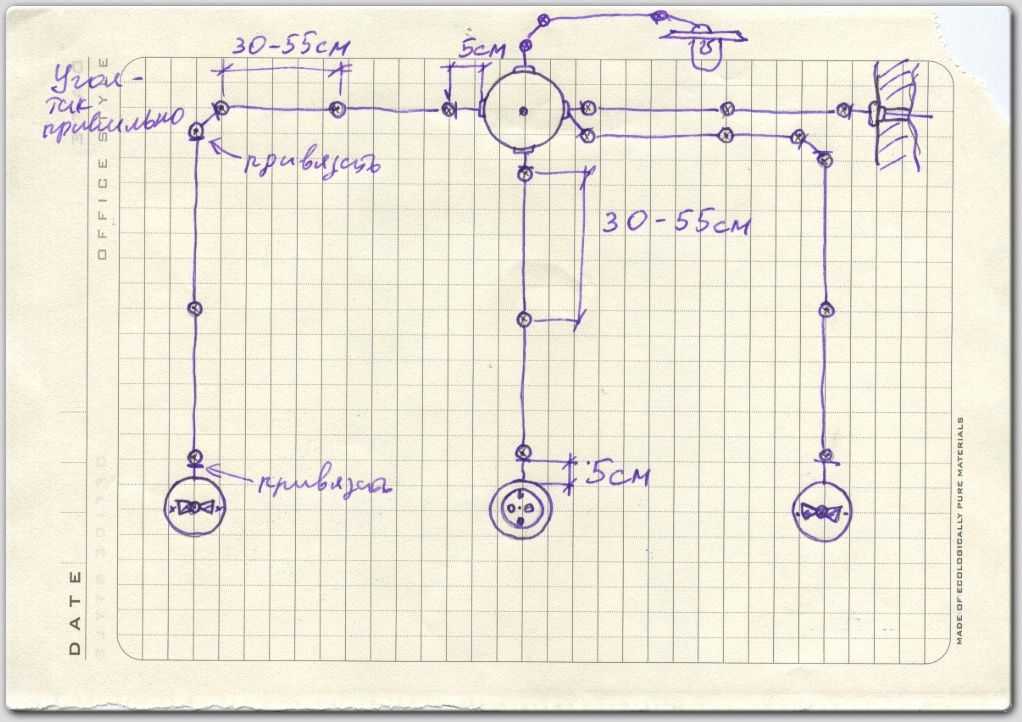 30-55см
5см
Угол -
так
правильно
привязать
125
30-55см
5см
привязать
OFFICE STYLE
DATE
MADE OF ECOLOGICALLY PURE MATERIALS